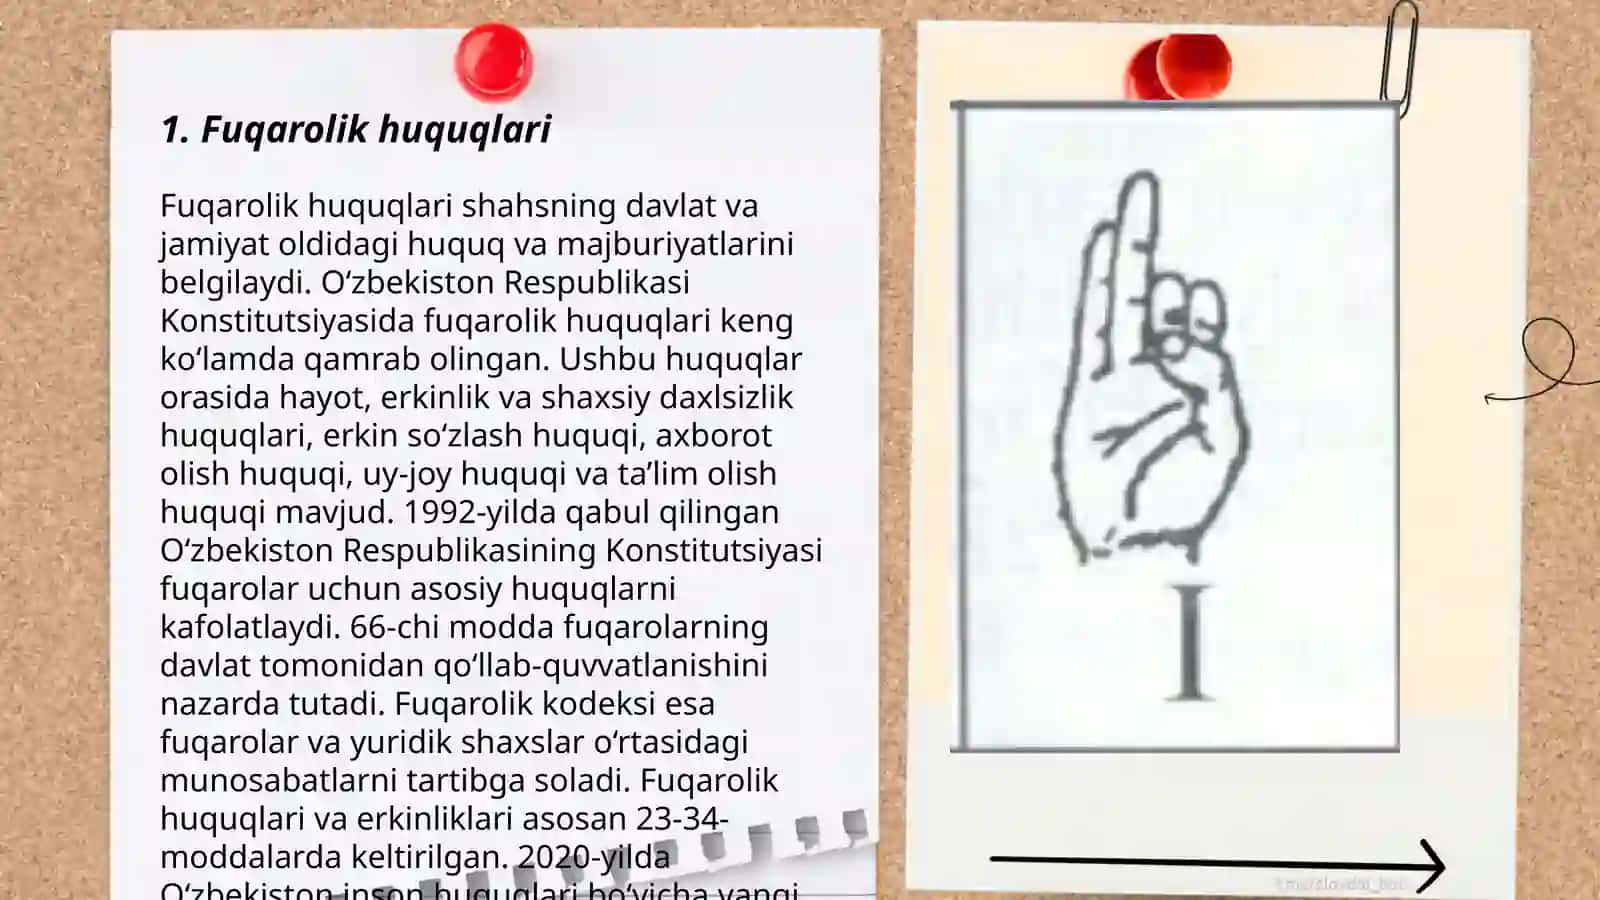 1. Fuqarolik huquqlari
Fuqarolik huquqlari shahsning davlat va
jamiyat oldidagi huquq va majburiyatlarini
belgilaydi. O‘zbekiston Respublikasi
Konstitutsiyasida fuqarolik huquqlari keng
ko‘lamda qamrab olingan. Ushbu huquqlar
orasida hayot, erkinlik va shaxsiy daxlsizlik
huquqlari, erkin so‘zlash huquqi, axborot
olish huquqi, uy-joy huquqi va ta’lim olish
huquqi mavjud. 1992-yilda qabul qilingan
O‘zbekiston Respublikasining Konstitutsiyasi
fuqarolar uchun asosiy huquqlarni
kafolatlaydi. 66-chi modda fuqarolarning
davlat tomonidan qo‘llab-quvvatlanishini
nazarda tutadi. Fuqarolik kodeksi esa
fuqarolar va yuridik shaxslar o‘rtasidagi
munosabatlarni tartibga soladi. Fuqarolik
huquqlari va erkinliklari asosan 23-34-
moddalarda keltirilgan. 2020-yilda
O‘zbekiston inson huquqlari bo‘yicha yangi
I